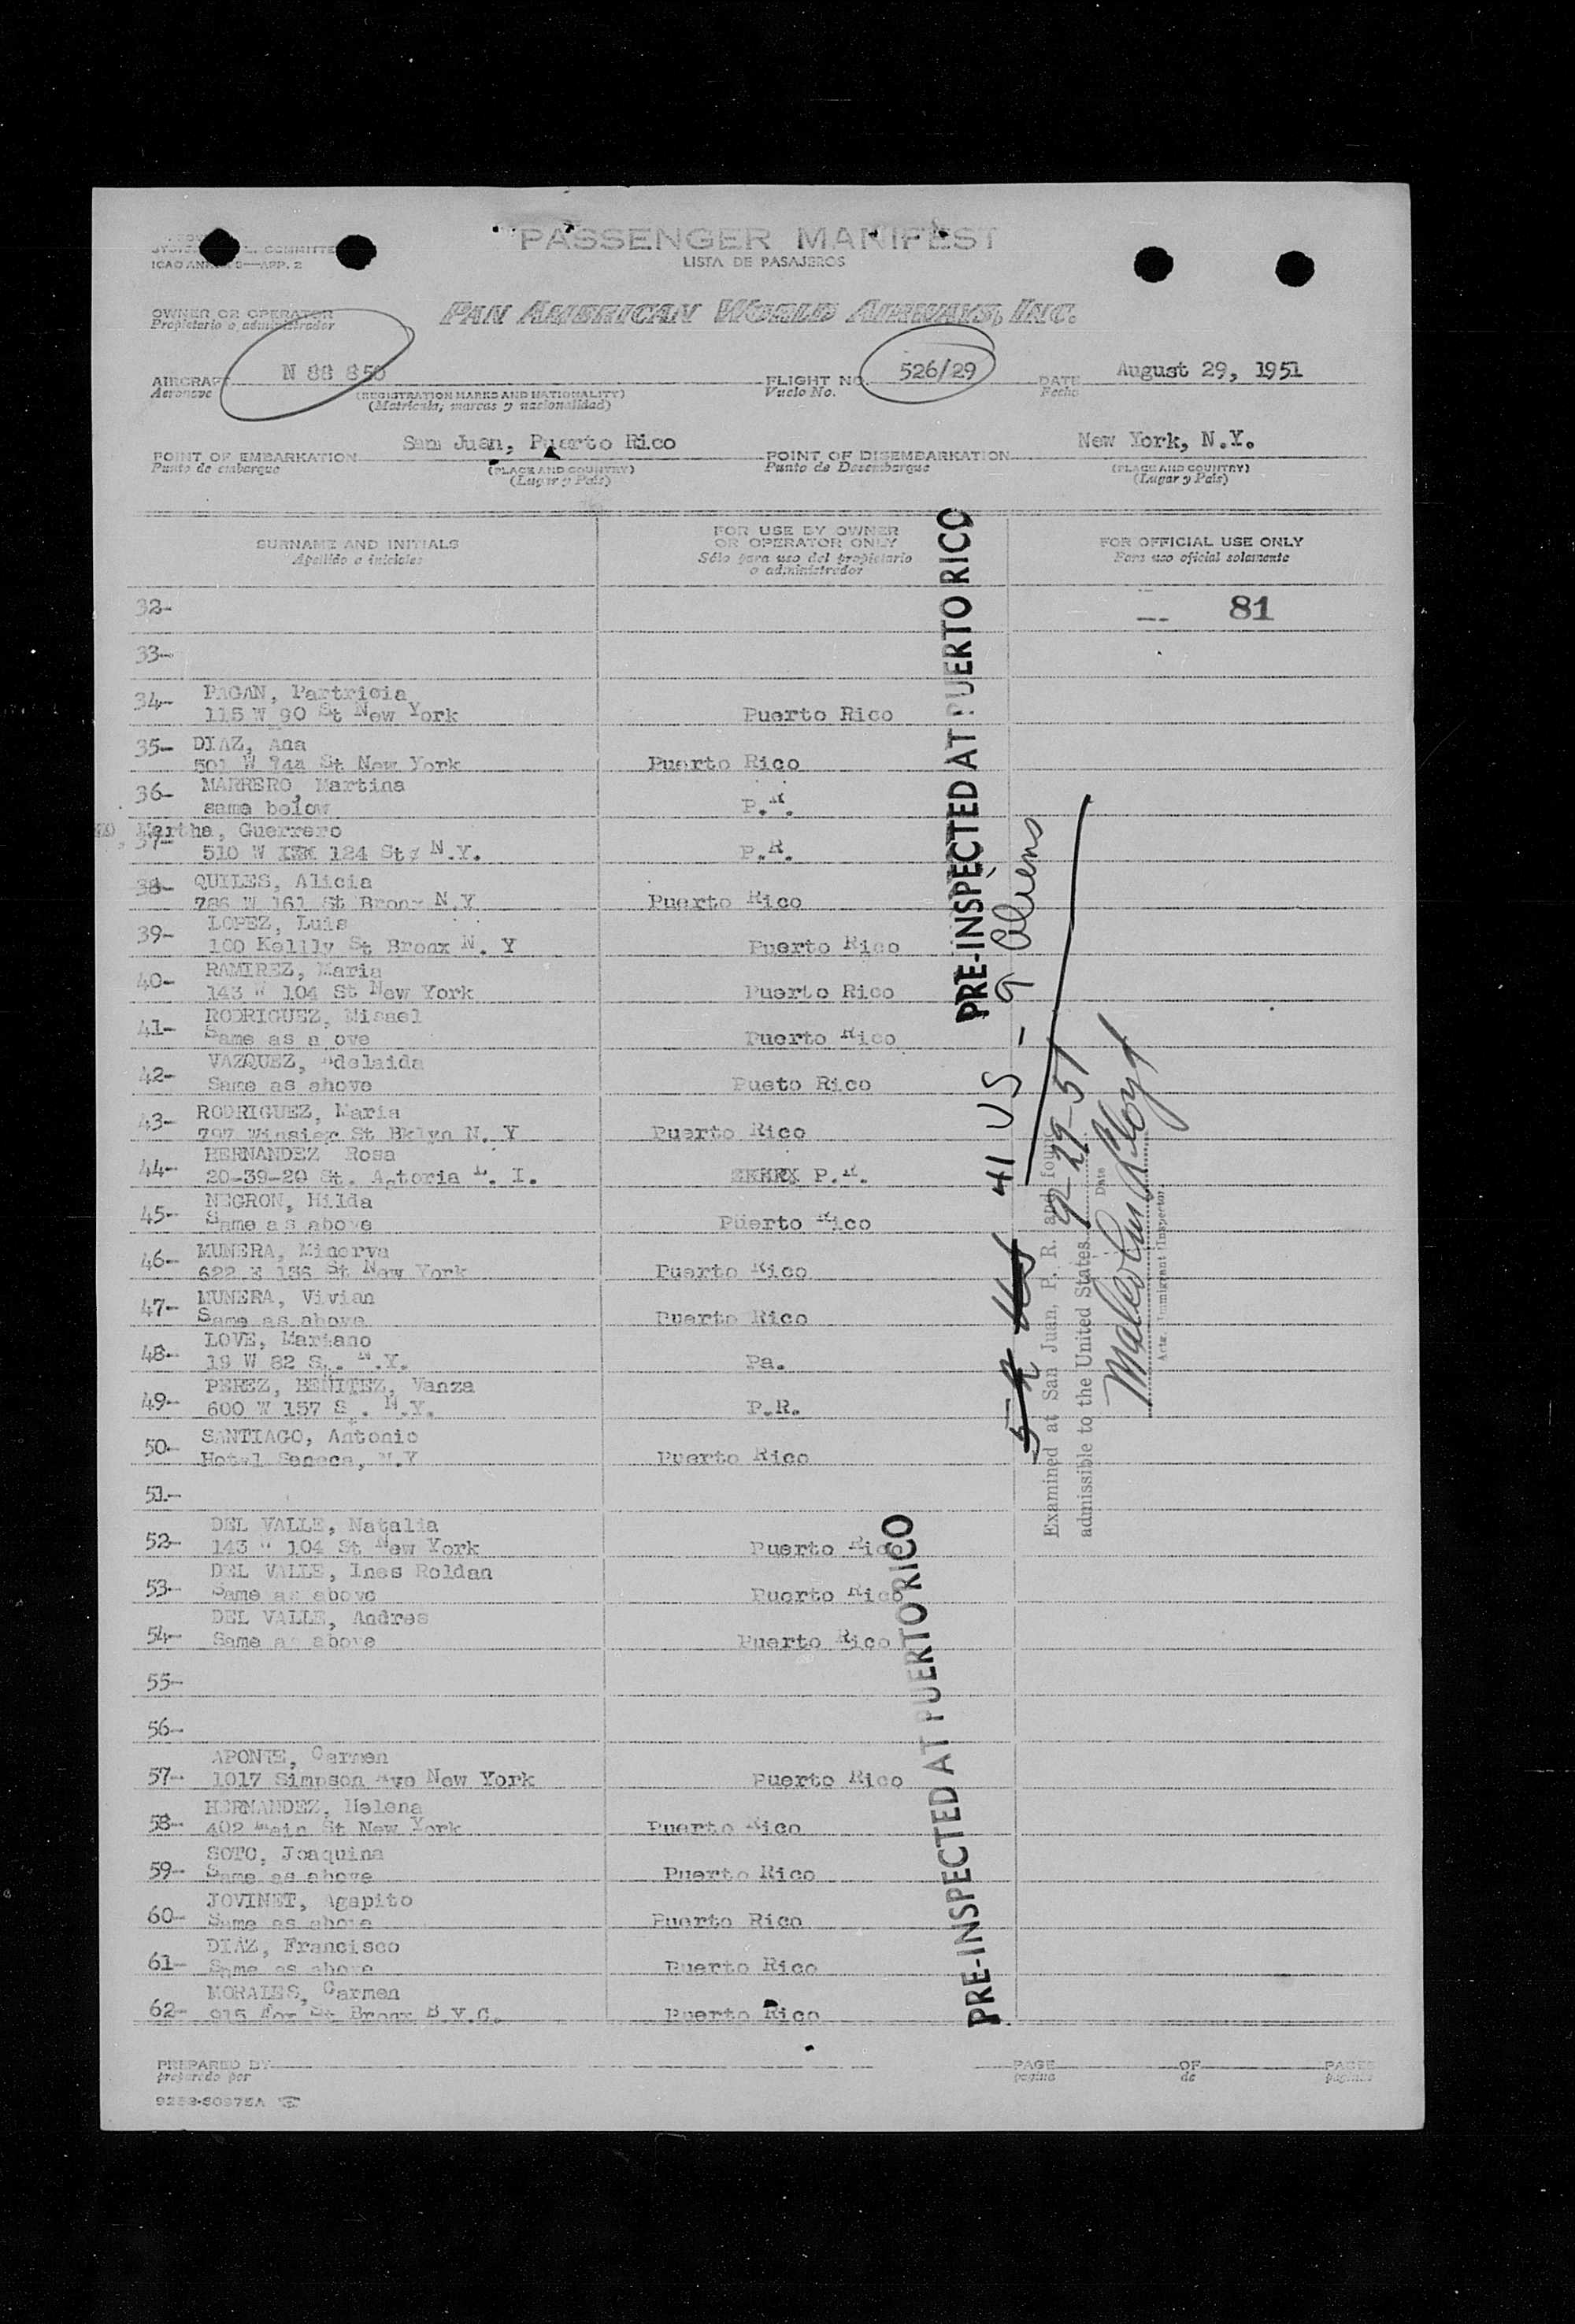 PASSENGER MANIFEST
LISTA DE PASAJEROS
ICAO ANNEX 9—APP. 2
OWNER OR OPERATOR
Propietario o administrador
PAN AMERICAN WORLD AIRWAYS, INC.
AIRCRAFT N 88 850
Aeronave
(REGISTRATION MARKS AND NATIONALITY)
(Matricula, marcas y nacionalidad)
FLIGHT NO. 526/29
Vuelo No.
DATE August 29, 1951
Fecha
POINT OF EMBARKATION San Juan, Puerto Rico
Punto de embarque
(PLACE AND COUNTRY)
(Lugar y País)
POINT OF DISEMBARKATION New York, N.Y.
Punto de Desembarque
(PLACE AND COUNTRY)
(Lugar y País)
SURNAME AND INITIALS
Apellido e iniciales
FOR USE BY OWNER
OR OPERATOR ONLY
Sólo para uso del propietario
o administrador
FOR OFFICIAL USE ONLY
Para uso oficial solamente
32-
81
33-
34- PAGAN, Partricia
115 W 90 St New York Puerto Rico
35- DIAZ, Ana
501 W 144 St New York Puerto Rico
36- MARRERO, Martina
same below P.R.
37- Martha, Guerrero
510 W 124 St N.Y. P.R.
38- QUILES, Alicia
786 W 161 St Bronx N.Y Puerto Rico
39- LOPEZ, Luis
100 Kellly St Bronx N. Y Puerto Rico
40- RAMIREZ, Maria
143 W 104 St New York Puerto Rico
41- RODRIGUEZ, Misael
Same as a ove Puerto Rico
42- VAZQUEZ, Adelaida
Same as above Pueto Rico
43- RODRIGUEZ, Maria
797 St Bklyn N. Y Puerto Rico
44- HERNANDEZ Rosa
20-39-20 St. Astoria L. I. P.R.
45- NEGRON, Hilda
Same as above Puerto Rico
46- MUNERA, Minerva
622 E 136 St New York Puerto Rico
47- MUNERA, Vivian
Same as above Puerto Rico
48- LOVE, Mariano
19 W 82 S.. N.Y. Pa.
49- PEREZ, BENITEZ, Vanza
600 W 157 S . N.Y. P.R.
50- SANTIAGO, Antonio
Hotel Seneca, N.Y Puerto Rico
51-
52- DEL VALLE, Natalia
143 W 104 St New York Puerto Rico
53- DEL VALLE, Ines Roldan
Same as above Puerto Rico
54- DEL VALLE, Andres
Same as above Puerto Rico
55-
56-
57- APONTE, Carmen
1017 Simpson Ave New York Puerto Rico
58- HERNANDEZ, Helena
402 Main St New York Puerto Rico
59- SOTO, Joaquina
Same as above Puerto Rico
60- JOVINET, Agapito
Same as above Puerto Rico
61- DIAZ, Francisco
Same as above Puerto Rico
62- MORALES, Carmen
915 Fox St Bronx Puerto Rico
PRE-INSPECTED AT PUERTO RICO
PRE-INSPECTED AT PUERTO RICO
41 US - 9 aliens
Examined at San Juan, P. R. and found
admissible to the United States 9-29-51
Date
Actg. Immigrant Inspector.
PREPARED BY
preparado por
PAGE OF PAGES
pagina de paginas